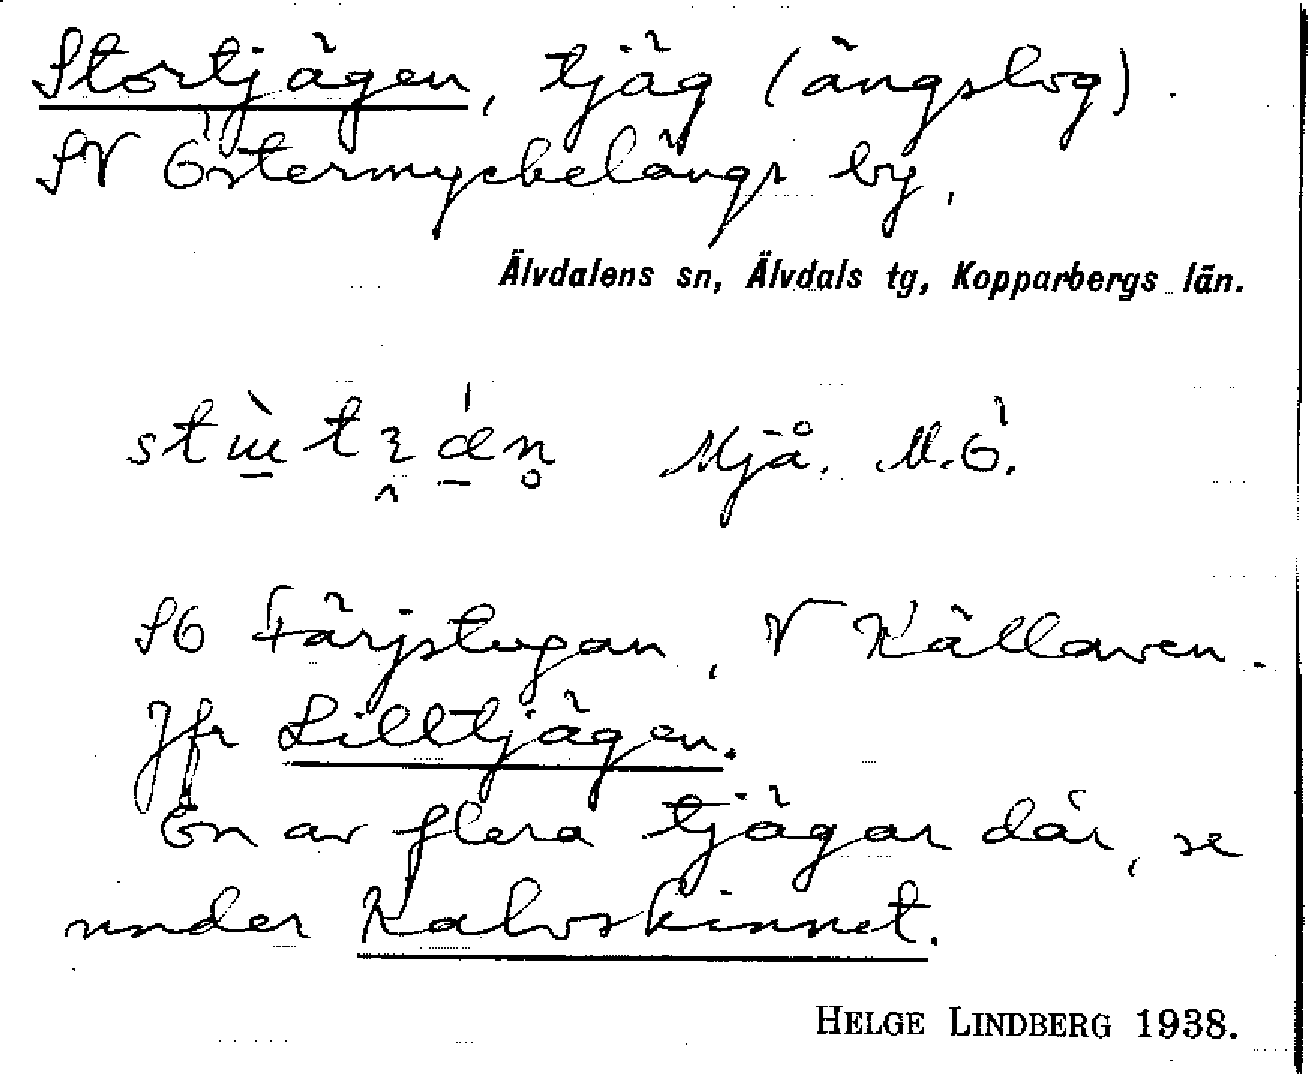 Stortjägen, tjäg (ängslog).
SV Östermyckelängs by.
Älvdalens sn, Älvdals tg, Kopparbergs län.
Mjå. M.Ö.
SÖ Färjstugan, V Källaren.
Jfr Lilltjägen.
En av flera tjägar där, se
under Kalvskinnet.
HELGE LINDBERG 1938.